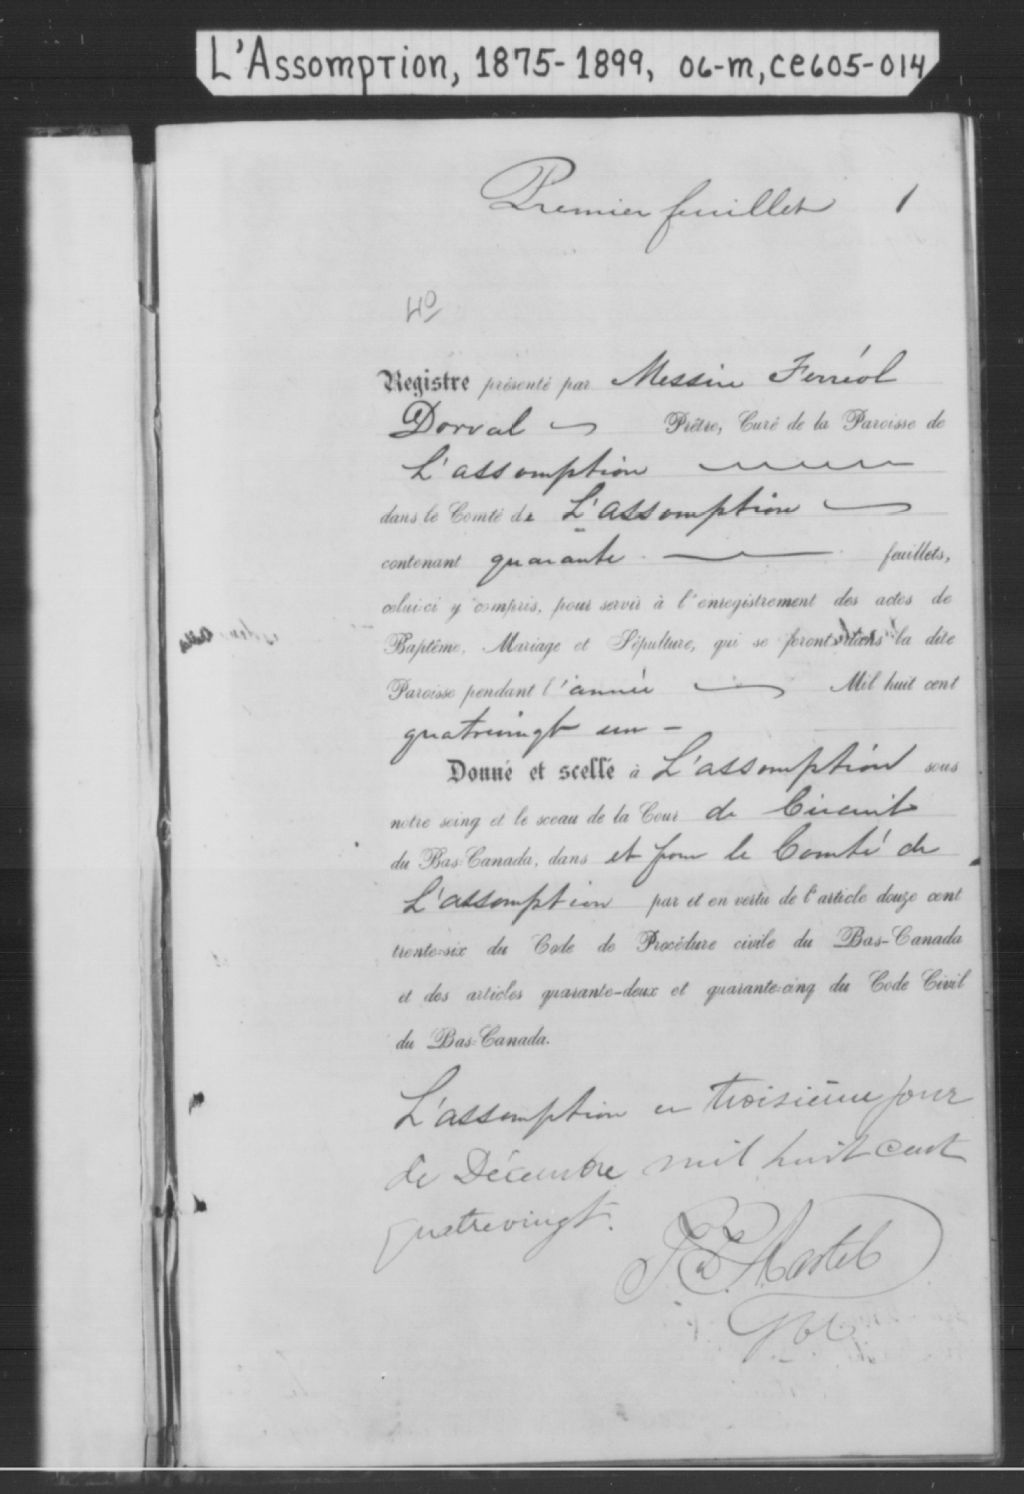 L'Assomption, 1875-1899, 06-m, ce605-014
Premier feuillet 1
40
Registre présenté par Messire Ferréol
Dorval Prêtre, Curé de la Paroisse de
L'assomption
dans le Comté de L'assomption
contenant quarante feuillets,
celui-ci y compris, pour servir à l'enregistrement des actes de
Baptême, Mariage et Sépulture, qui se feront dans la dite
Paroisse pendant l'année Mil huit cent
quatrevingt un -
Donné et scellé à L'assomption sous
notre seing et le sceau de la Cour de Circuit
du Bas-Canada, dans et pour le Comté de
L'assomption par et en vertu de l'article douze cent
trente-six du Code de Procédure civile du Bas-Canada
et des articles quarante-deux et quarante-cinq du Code Civil
du Bas-Canada.
L'assomption ce troisième jour
de Décembre mil huit cent
quatrevingt.
Martel